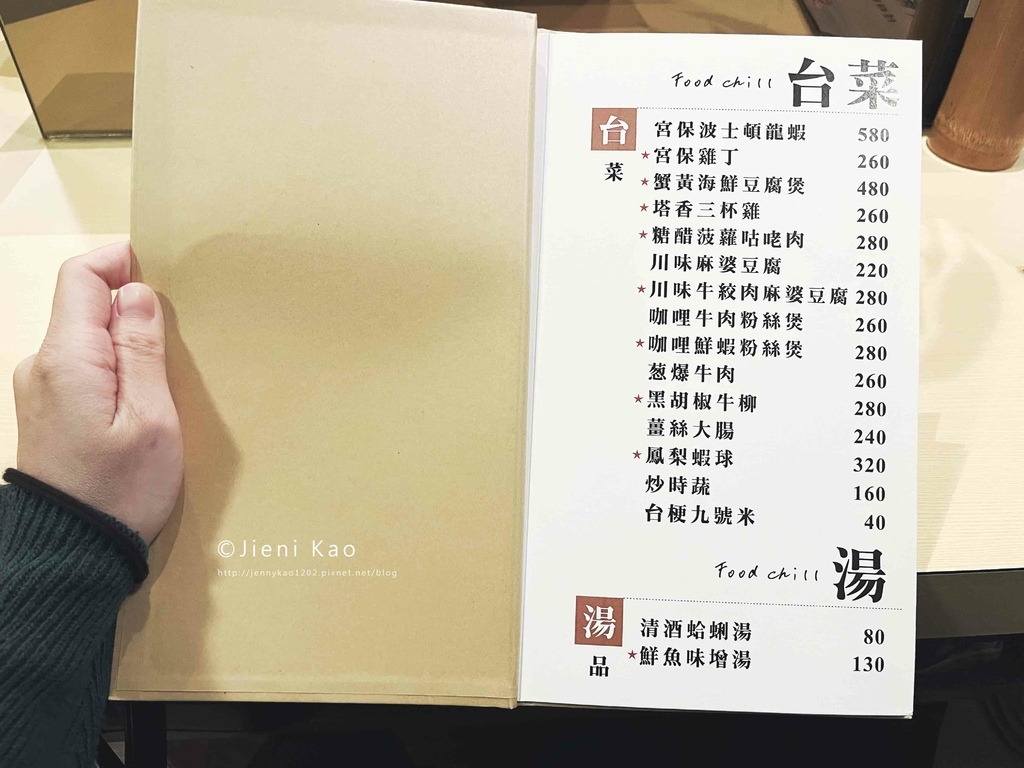 Food chill 台菜
台菜
宮保波士頓龍蝦 580
★宮保雞丁 260
★蟹黃海鮮豆腐煲 480
★塔香三杯雞 260
★糖醋菠蘿咕咾肉 280
川味麻婆豆腐 220
★川味牛絞肉麻婆豆腐 280
咖哩牛肉粉絲煲 260
★咖哩鮮蝦粉絲煲 280
葱爆牛肉 260
★黑胡椒牛柳 280
薑絲大腸 240
★鳳梨蝦球 320
炒時蔬 160
台梗九號米 40
Food chill 湯
湯品
清酒蛤蜊湯 80
★鮮魚味增湯 130
©Jieni Kao
http://jennykao1202.pixnet.net/blog